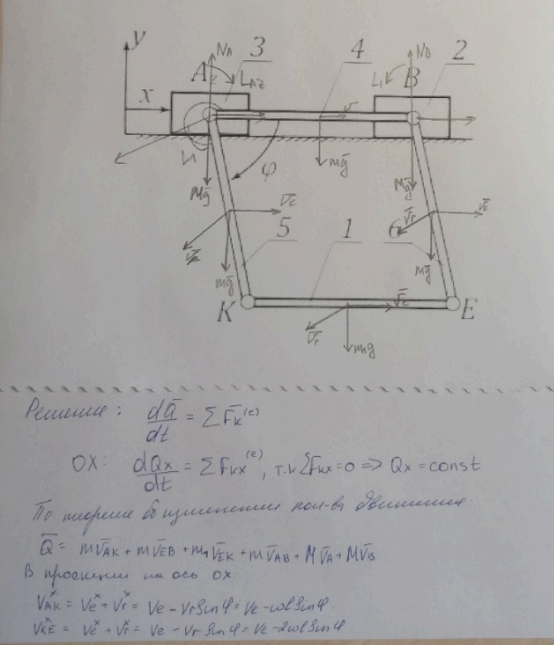 y
N_A
3
4
N_B
2
A
L_A2
L_1
B
x
v̄
L_1
φ
mḡ
Mḡ
Mḡ
V̄e
V̄r
V̄e
5
1
6
mḡ
mḡ
V̄e
K
E
V̄r
mg
Решение: dQ̄/dt = ΣF̄к^(e)
OX: dQx/dt = ΣFкx^(e), т.к ΣFкx=0 => Qx=const
По теореме изменения кол-ва движения
Q̄ = mV̄AK + mV̄EB + m₁V̄EK + mV̄AB + MV̄A + MV̄B
В проекции на ось OX
VAK^x = Ve^x + Vr^x = Ve - Vr sinφ = Ve - ωl sinφ
VKE^x = Ve^x + Vr^x = Ve - Vr sinφ = Ve - 2ωl sinφ